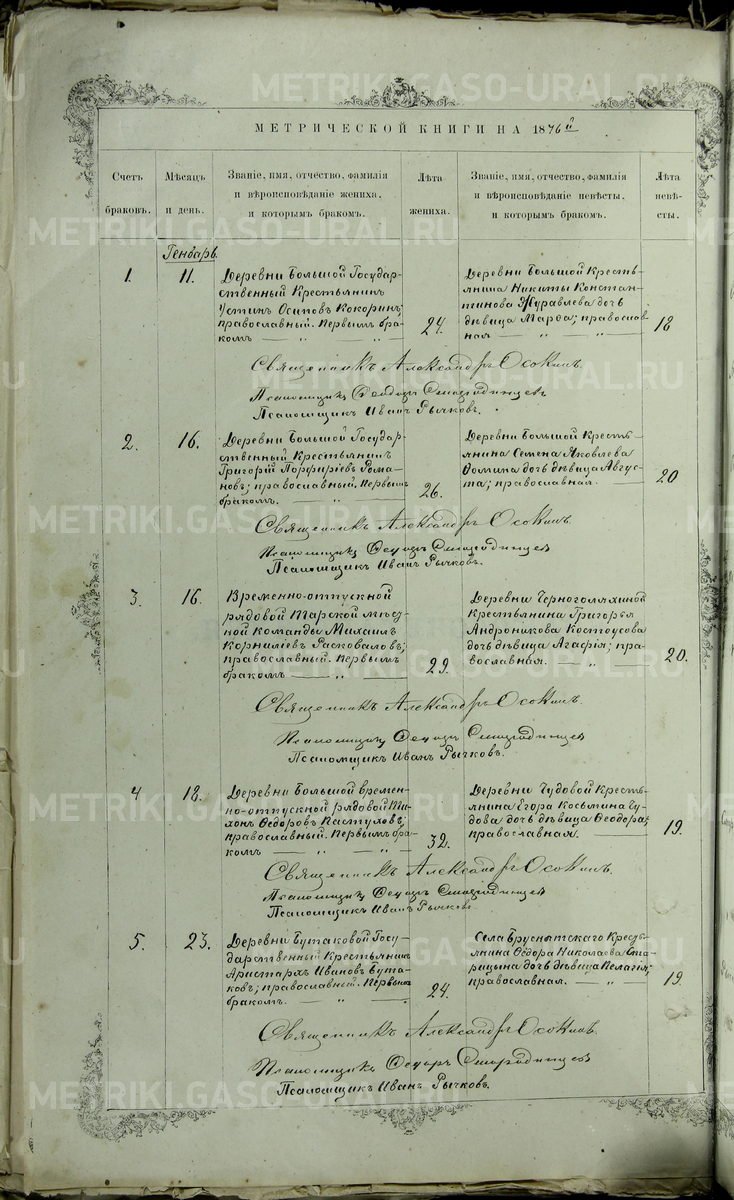 METRIKI.GASO-URAL.RU
МЕТРИЧЕСКОЙ КНИГИ НА 1876й
Счетъ браковъ.
Мѣсяцъ и день.
Званіе, имя, отчество, фамилія
и вѣроисповѣданіе жениха,
и которымъ бракомъ.
Лѣта жениха.
Званіе, имя, отчество, фамилія
и вѣроисповѣданіе невѣсты,
и которымъ бракомъ.
Лѣта невѣ-
сты.
Генварь.
1. 11.
Деревни Большой Государ-
ственный Крестьянинъ
Устинъ Осиповъ Кокоринъ;
православный. Первымъ бра-
комъ — „ — „ —
24.
Деревни Большой Кресть-
янина Никиты Констан-
тинова Журавлева дочь
дѣвица Марѳа; православ-
ная — „ — „
18
Священникъ Александръ Осокинъ.
Псаломщикъ Ѳеодоръ Смородинцевъ
Псаломщикъ Иванъ Рычковъ.
2. 16.
Деревни Большой Государ-
ственный Крестьянинъ
Григорій Порфирьевъ Рома-
новъ; православный. Первымъ
бракомъ. — „ —
26.
Деревни Большой Кресть-
янина Семена Яковлева
Ѳомина дочь дѣвица Авгус-
та; православная. —
20
Священникъ Александръ Осокинъ.
Псаломщикъ Ѳеодоръ Смородинцевъ
Псаломщикъ Иванъ Рычковъ.
3. 16.
Временно-отпускной
рядовой Тарской мѣст-
ной команды Михаилъ
Корниліевъ Расковаловъ;
православный. Первымъ
бракомъ — „ —
29.
Деревни Черноголяхиной
Крестьянина Григорья
Андроникова Костоусова
дочь дѣвица Агафія; пра-
вославная. — „ —
20.
Священникъ Александръ Осокинъ.
Псаломщикъ Ѳеодоръ Смородинцевъ
Псаломщикъ Иванъ Рычковъ.
4 18.
Деревни Большой времен-
но-отпускной рядовой Ти-
хонъ Ѳедоровъ Пастуховъ;
православный. Первымъ бра-
комъ — „ — „ —
32.
Деревни Чудовой Кресть-
янина Егора Косьмина Чу-
дова дочь дѣвица Ѳеодора;
православная. —
19.
Священникъ Александръ Осокинъ.
Псаломщикъ Ѳеодоръ Смородинцевъ
Псаломщикъ Иванъ Рычковъ
5. 23.
Деревни Бутаковой Госу-
дарственный Крестьянинъ
Аристархъ Ивановъ Бута-
ковъ; православный. Первымъ
бракомъ. — „ —
24.
Села Бруснятскаго Кресть-
янина Ѳедора Николаева Ста-
рицына дочь дѣвица Пелагія;
православная. — „ —
19.
Священникъ Александръ Осокинъ.
Псаломщикъ Ѳеодоръ Смородинцевъ
Псаломщикъ Иванъ Рычковъ.